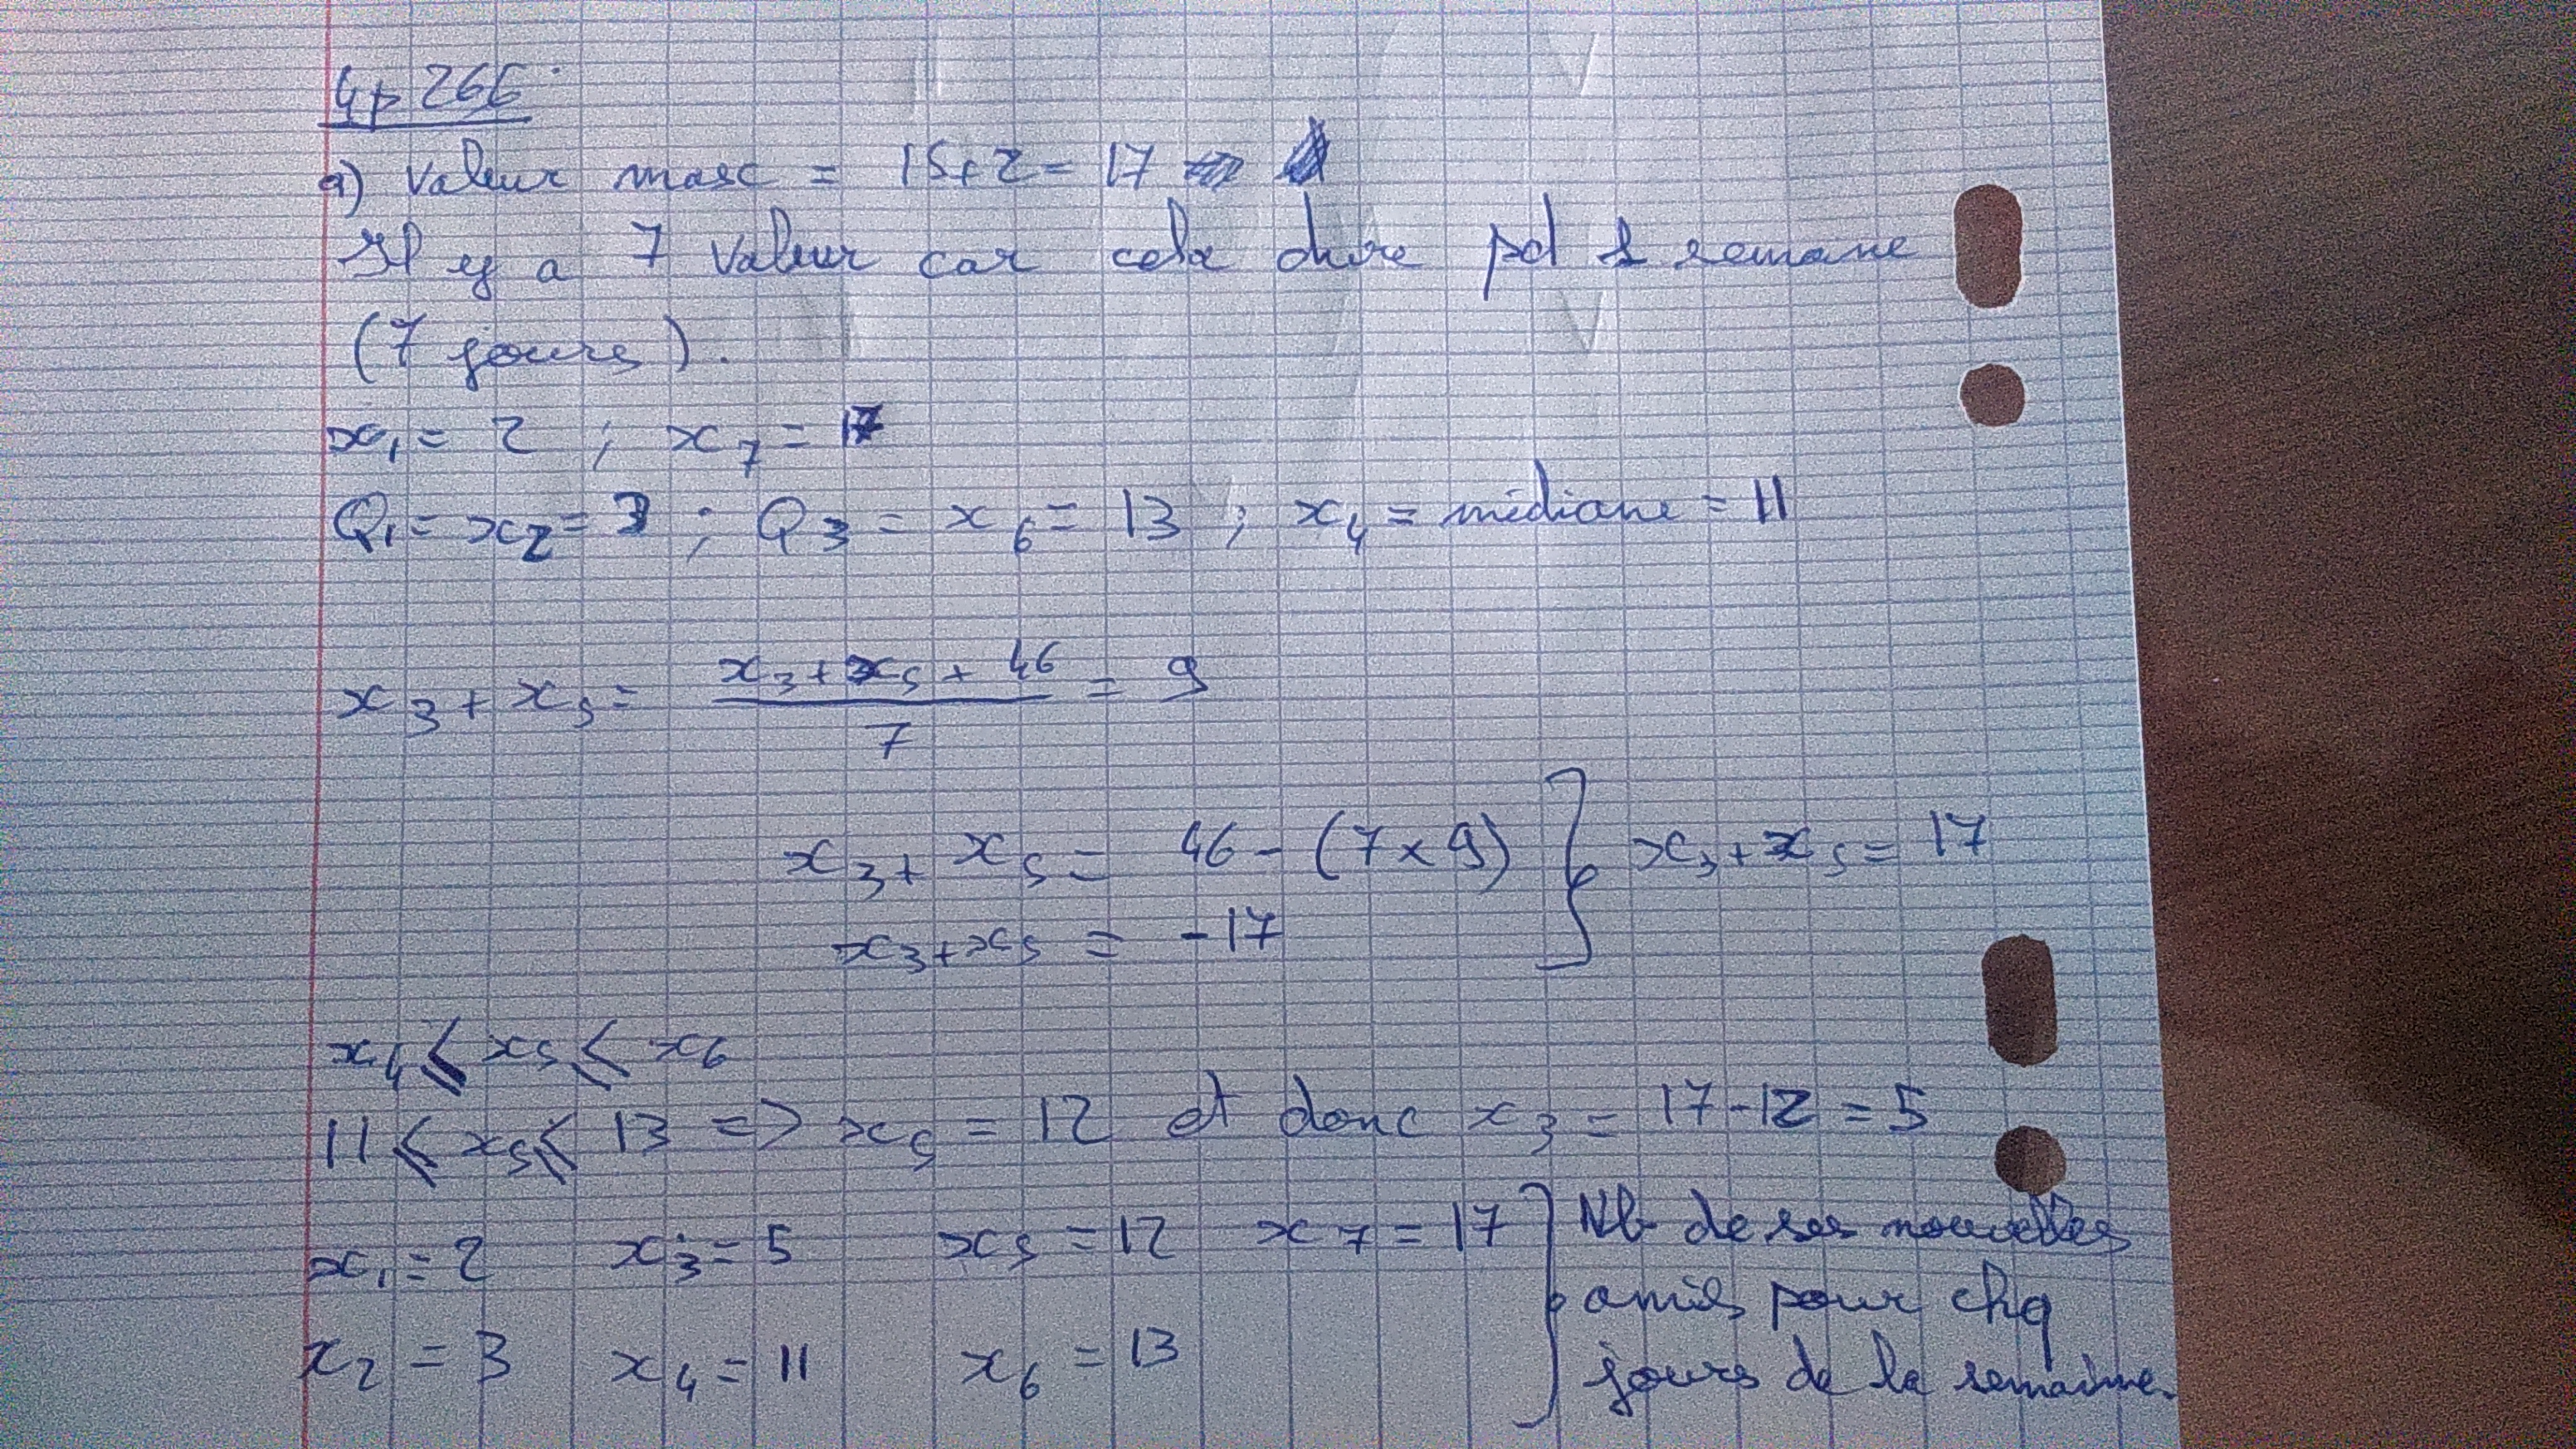 4p266
a) Valeur max = 15+2 = 17
Il y a 7 valeur car cela dure pd 1 semaine
(7 jours).
x₁ = 2 ; x₇ = 17
Q₁ = x₂ = 3 ; Q₃ = x₆ = 13 ; x₄ = médiane = 11
x₃ + x₅ = (x₃ + x₅ + 46) / 7 = 9
x₃ + x₅ = 46 - (7 × 9) } x₃ + x₅ = 17
x₃ + x₅ = -17
x₄ ⩽ x₅ ⩽ x₆
11 ⩽ x₅ ⩽ 13 => x₅ = 12 et donc x₃ = 17-12 = 5
x₁ = 2 x₃ = 5 x₅ = 12 x₇ = 17 } Nb de ses nouvelles
amis pour chq
x₂ = 3 x₄ = 11 x₆ = 13
jours de la semaine.